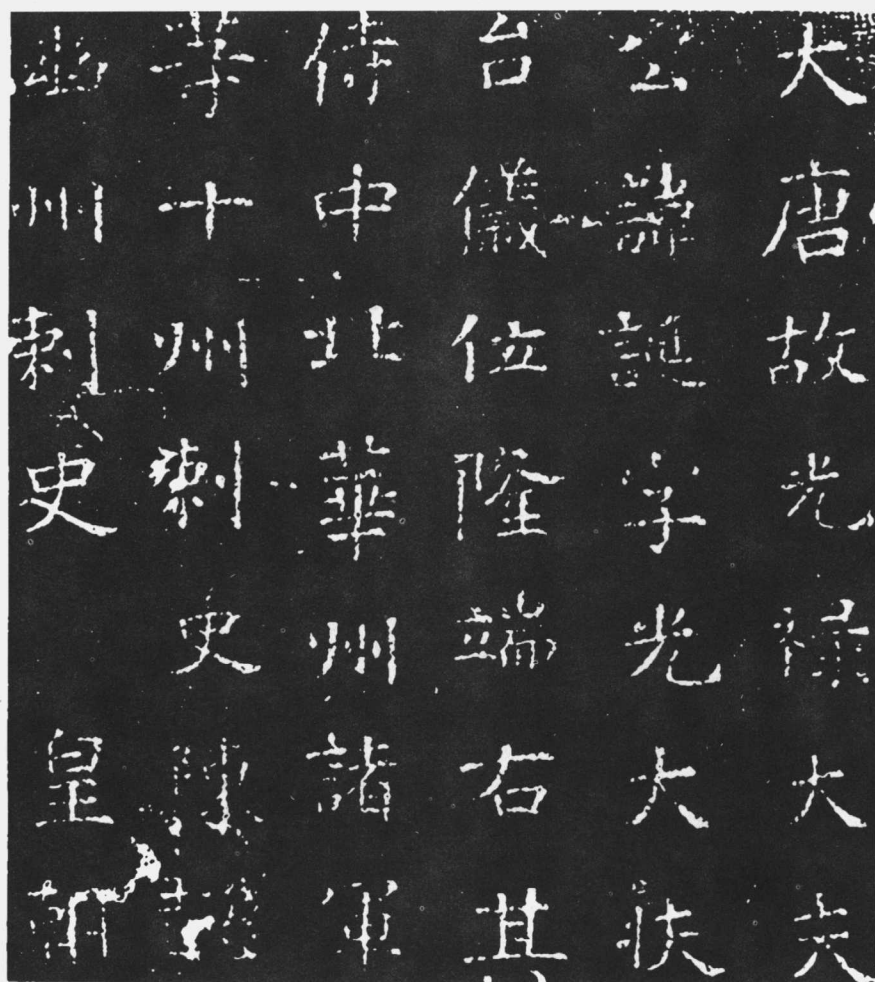 大唐故光祿大夫
公諱誕字光大扶
台儀位隆端右其
侍中北華州諸軍
等十州刺史
幽州刺史皇